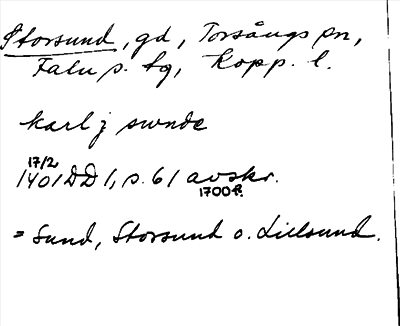 Storsund, gd, Torsångs sn,
Falu s. tg, Kopp. l.
karl j swnde
17/2
1401 DD 1, s. 61 avskr.
1700 t.
= Sund, Storsund o. Lillsund.